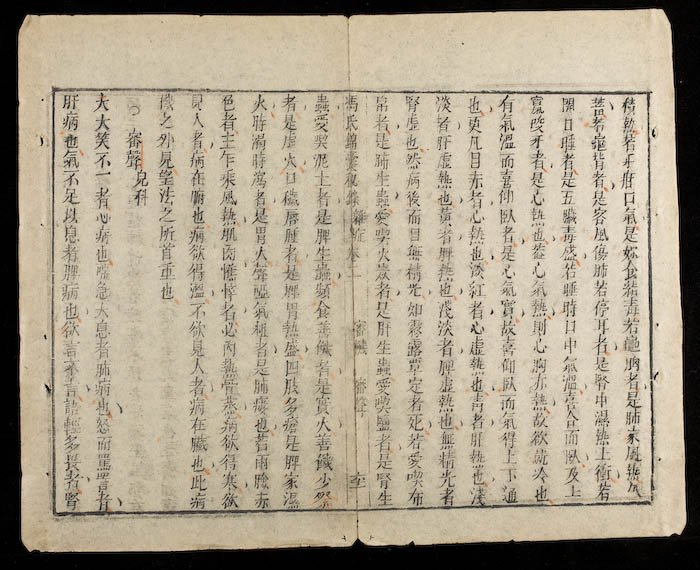 積熱若牙疳口氣是　食積毒若龜胸者是肺家風熱久
若　龜背者是客風傷肺若停耳者是腎中濕熱上衝若
開口睡者是五臟毒盛若睡時口中氣溫　合面臥及上
竄咬牙者是心熱也蓋心氣熱則心胸亦熱故欲就冷也
有氣溫而喜仰臥者是心氣實故喜仰臥而氣得上下通
也更凡目赤者心熱也淡紅者心虛熱也青者肝熱也淺
淡者肝虛熱也黃者脾熱也淺淡者脾虛熱也無精光者
腎虛也然病後而目無精光如霧露罩定者死若愛喫布
帛者是肺生蟲愛喫火炭者是肝生蟲愛喫鹽者是腎生
馮氏錦囊秘錄雜症卷二　審機　審聲
蟲愛喫泥土者是脾生蟲頻食善饑者是實火善饑少食
者是虛火口穢唇腫者是脾胃熱盛四肢多瘡是脾家濕
火時瀉時瀉者是胃火聲啞氣粗者是肺痿也若兩臉赤
色者主乍乘風熱肌肉憔悴者必內熱骨蒸病欲得寒欲
見人者病在腑也病欲得溫不欲見人者病在臟也此病
機之外見望法之所首重也
○審聲兒科
大大笑不一者心病也喘急太息者肺病也怒而罵詈者
肝病也氣不足以息者脾病也欲言不言語輕多畏者腎